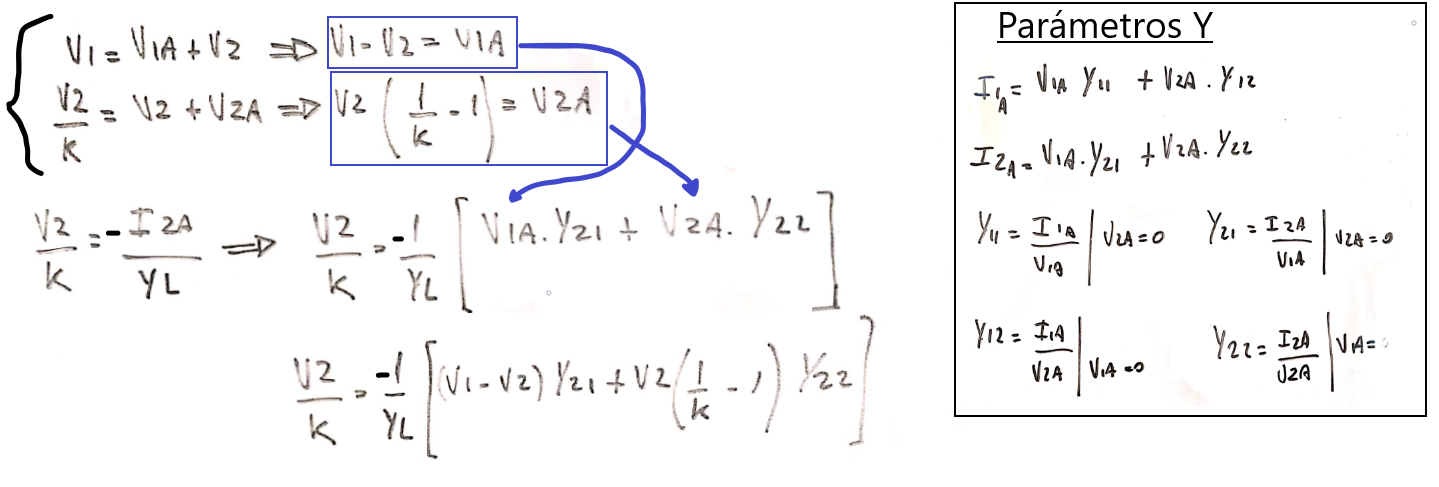 V1 = V1A + V2 ⇒ V1 - V2 = V1A
V2/K = V2 + V2A ⇒ V2 (1/K - 1) = V2A
V2/K = - I2A/YL ⇒ V2/K = -1/YL [V1A . Y21 + V2A . Y22]
V2/K = -1/YL [(V1 - V2) Y21 + V2 (1/K - 1) Y22]
Parámetros Y
I1A = V1A Y11 + V2A . Y12
I2A = V1A . Y21 + V2A . Y22
Y11 = I1A/V1A | V2A = 0 Y21 = I2A/V1A | V2A = 0
Y12 = I1A/V2A | V1A = 0 Y22 = I2A/V2A | V1A =